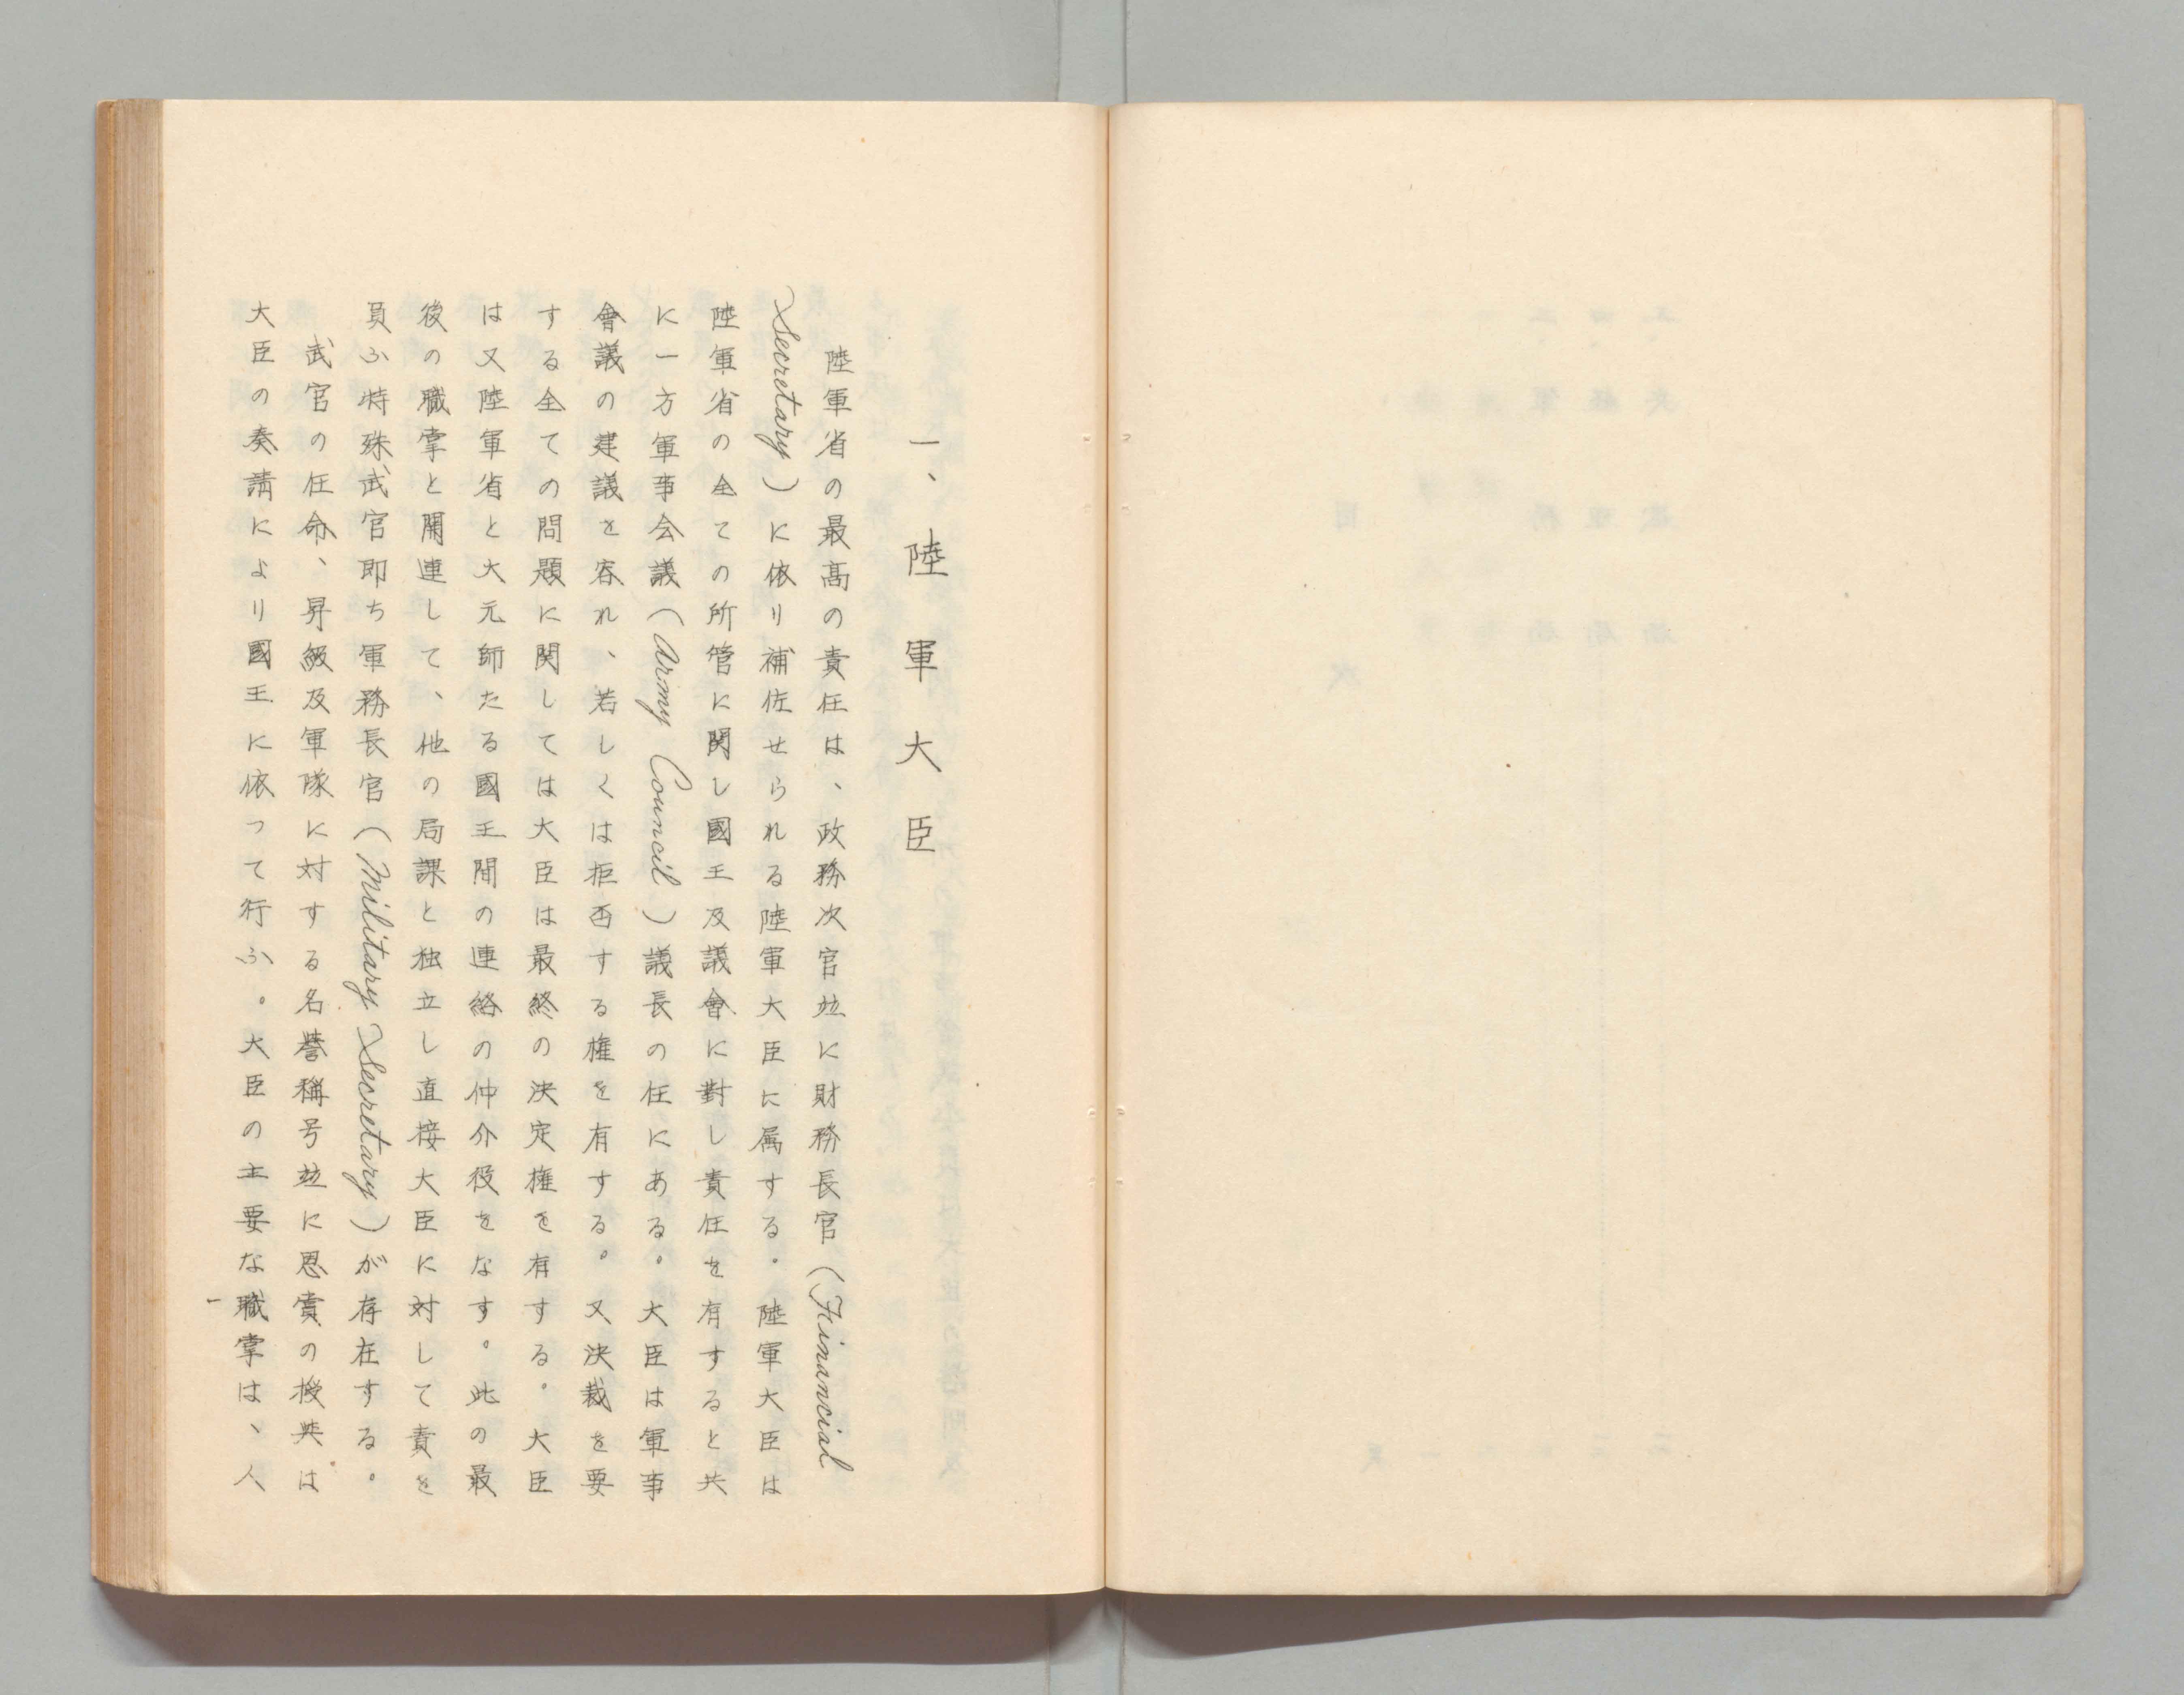 一、陸軍大臣
陸軍省の最高の責任は、政務次官並に財務長官(Financial
Secretary)に依リ補佐せられる陸軍大臣に属する。陸軍大臣は
陸軍省の全ての所管に関し國王及議會に對し責任を有すると共
に一方軍事会議(Army Council)議長の任にある。大臣は軍事
會議の建議を容れ、若しくは拒否する権を有する。又決裁を要
する全ての問題に関しては大臣は最終の決定権を有する。大臣
は又陸軍省と大元師たる國王間の連絡の仲介役をなす。此の最
後の職掌と関連して、他の局課と独立し直接大臣に対して責を
負ふ特殊武官即ち軍務長官(Military Secretary)が存在する。
武官の任命、昇級及軍隊に対する名誉稱号並に恩賞の授与は
大臣の奏請により國王に依って行ふ。大臣の主要な職掌は、人
一